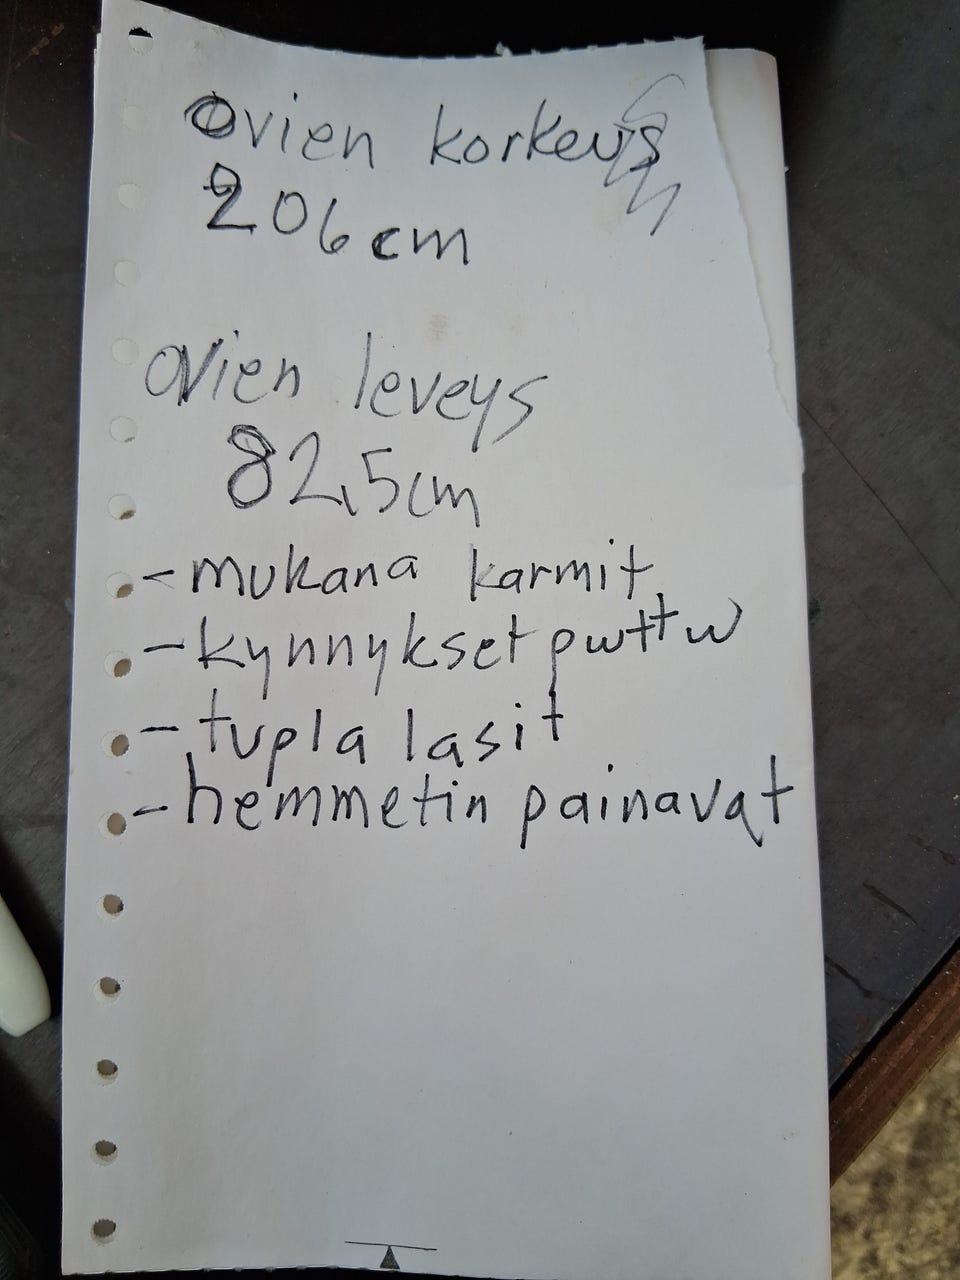 Ovien korkeus
206 cm
Ovien leveys
82,5 cm
- mukana karmit
- kynnykset puttu
- tupla lasit
- hemmetin painavat